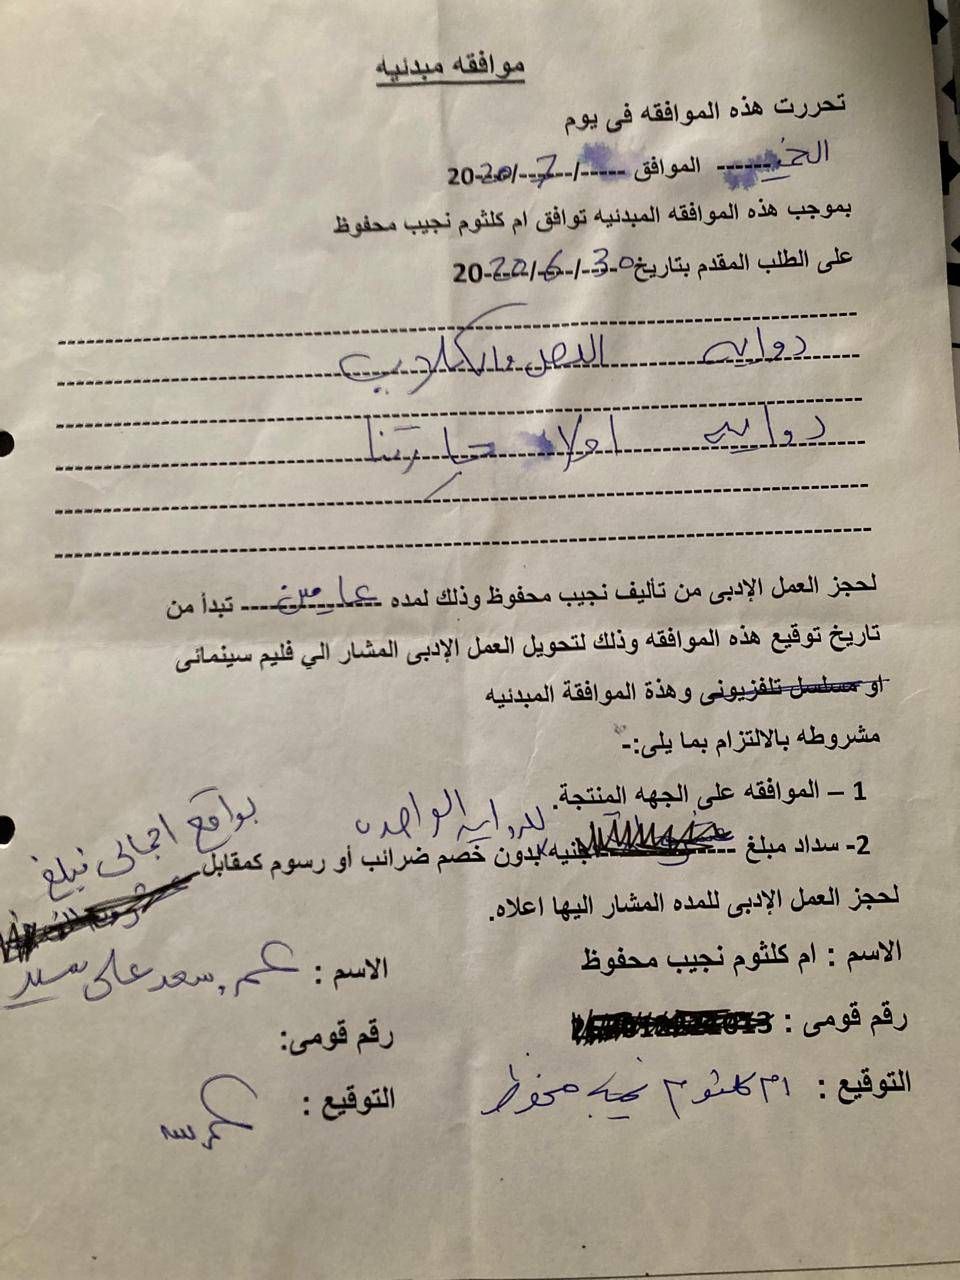 موافقه مبدئيه
تحررت هذه الموافقه فى يوم
------ الموافق -----/--7---/--2020
بموجب هذه الموافقه المبدئيه توافق ام كلثوم نجيب محفوظ
على الطلب المقدم بتاريخ 30/--6--/--2020
روايه اللص والكلاب
روايه اولاد حارتنا
لحجز العمل الإدبى من تأليف نجيب محفوظ وذلك لمده عامين تبدأ من
تاريخ توقيع هذه الموافقه وذلك لتحويل العمل الإدبى المشار الي فليم سينمائى
او مسلسل تلفزيونى وهذة الموافقة المبدئيه
مشروطه بالالتزام بما يلى:-
1 – الموافقه على الجهه المنتجة.
للروايه الواحده بواقع اجمالى مبلغ
2- سداد مبلغ جنيه بدون خصم ضرائب أو رسوم كمقابل
لحجز العمل الإدبى للمده المشار اليها اعلاه.
الاسم : ام كلثوم نجيب محفوظ
الاسم : سعد على سيد
رقم قومى :
رقم قومى:
التوقيع : ام كلثوم نجيب محفوظ
التوقيع :